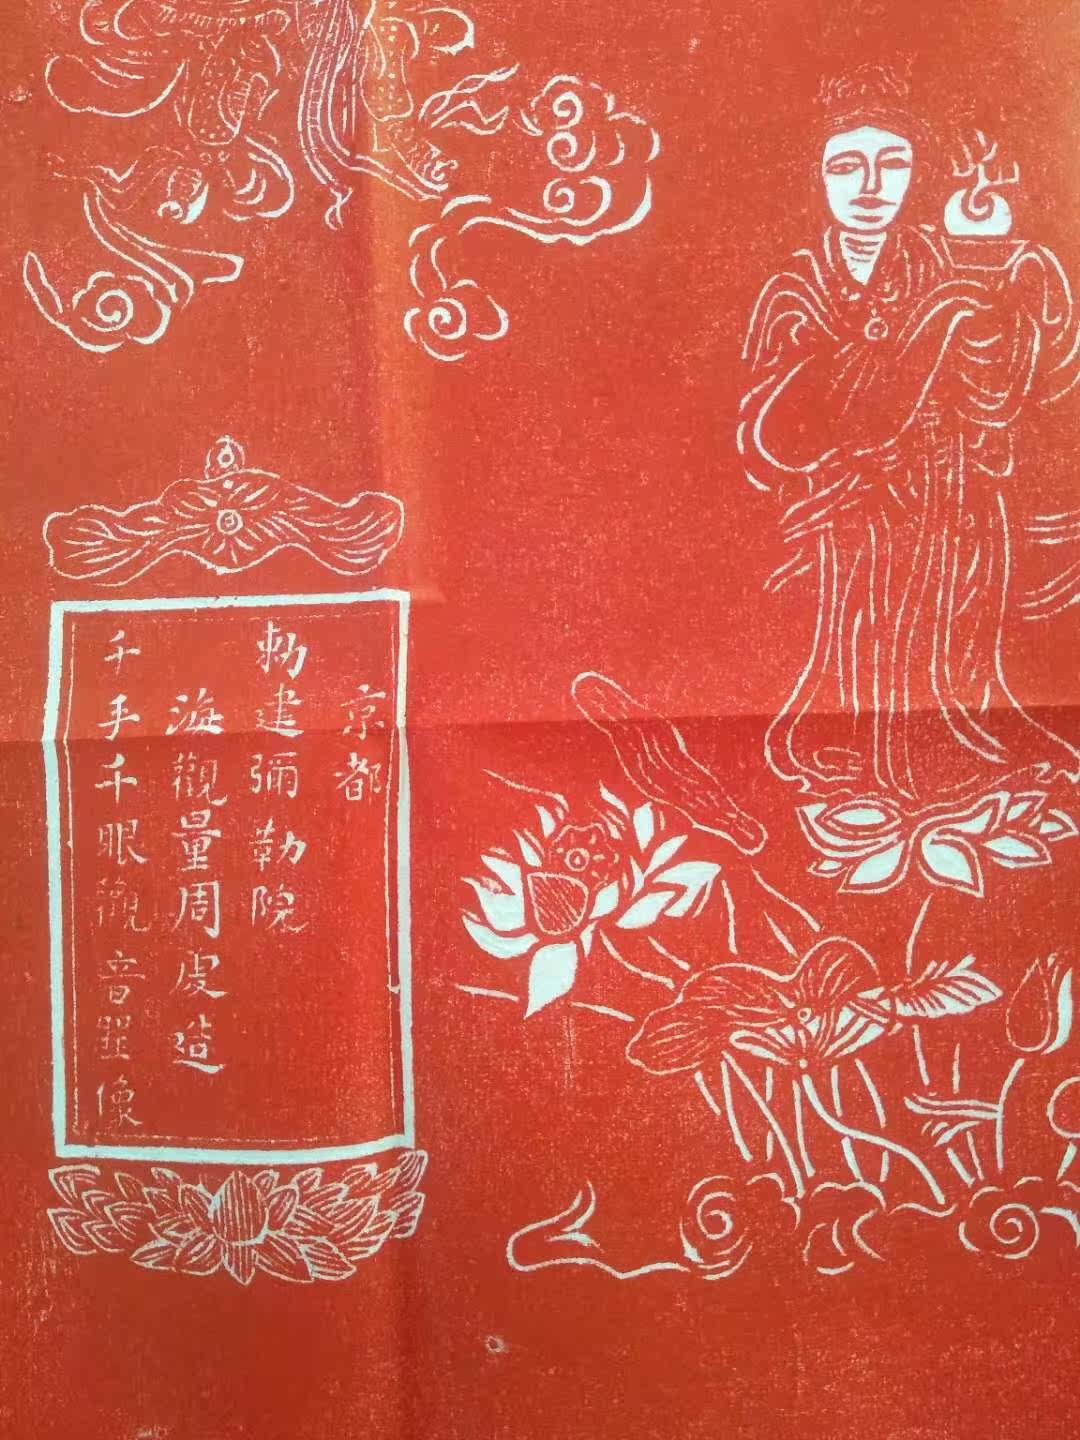 京都
勅建彌勒院
海觀量周虔造
千手千眼觀音聖像